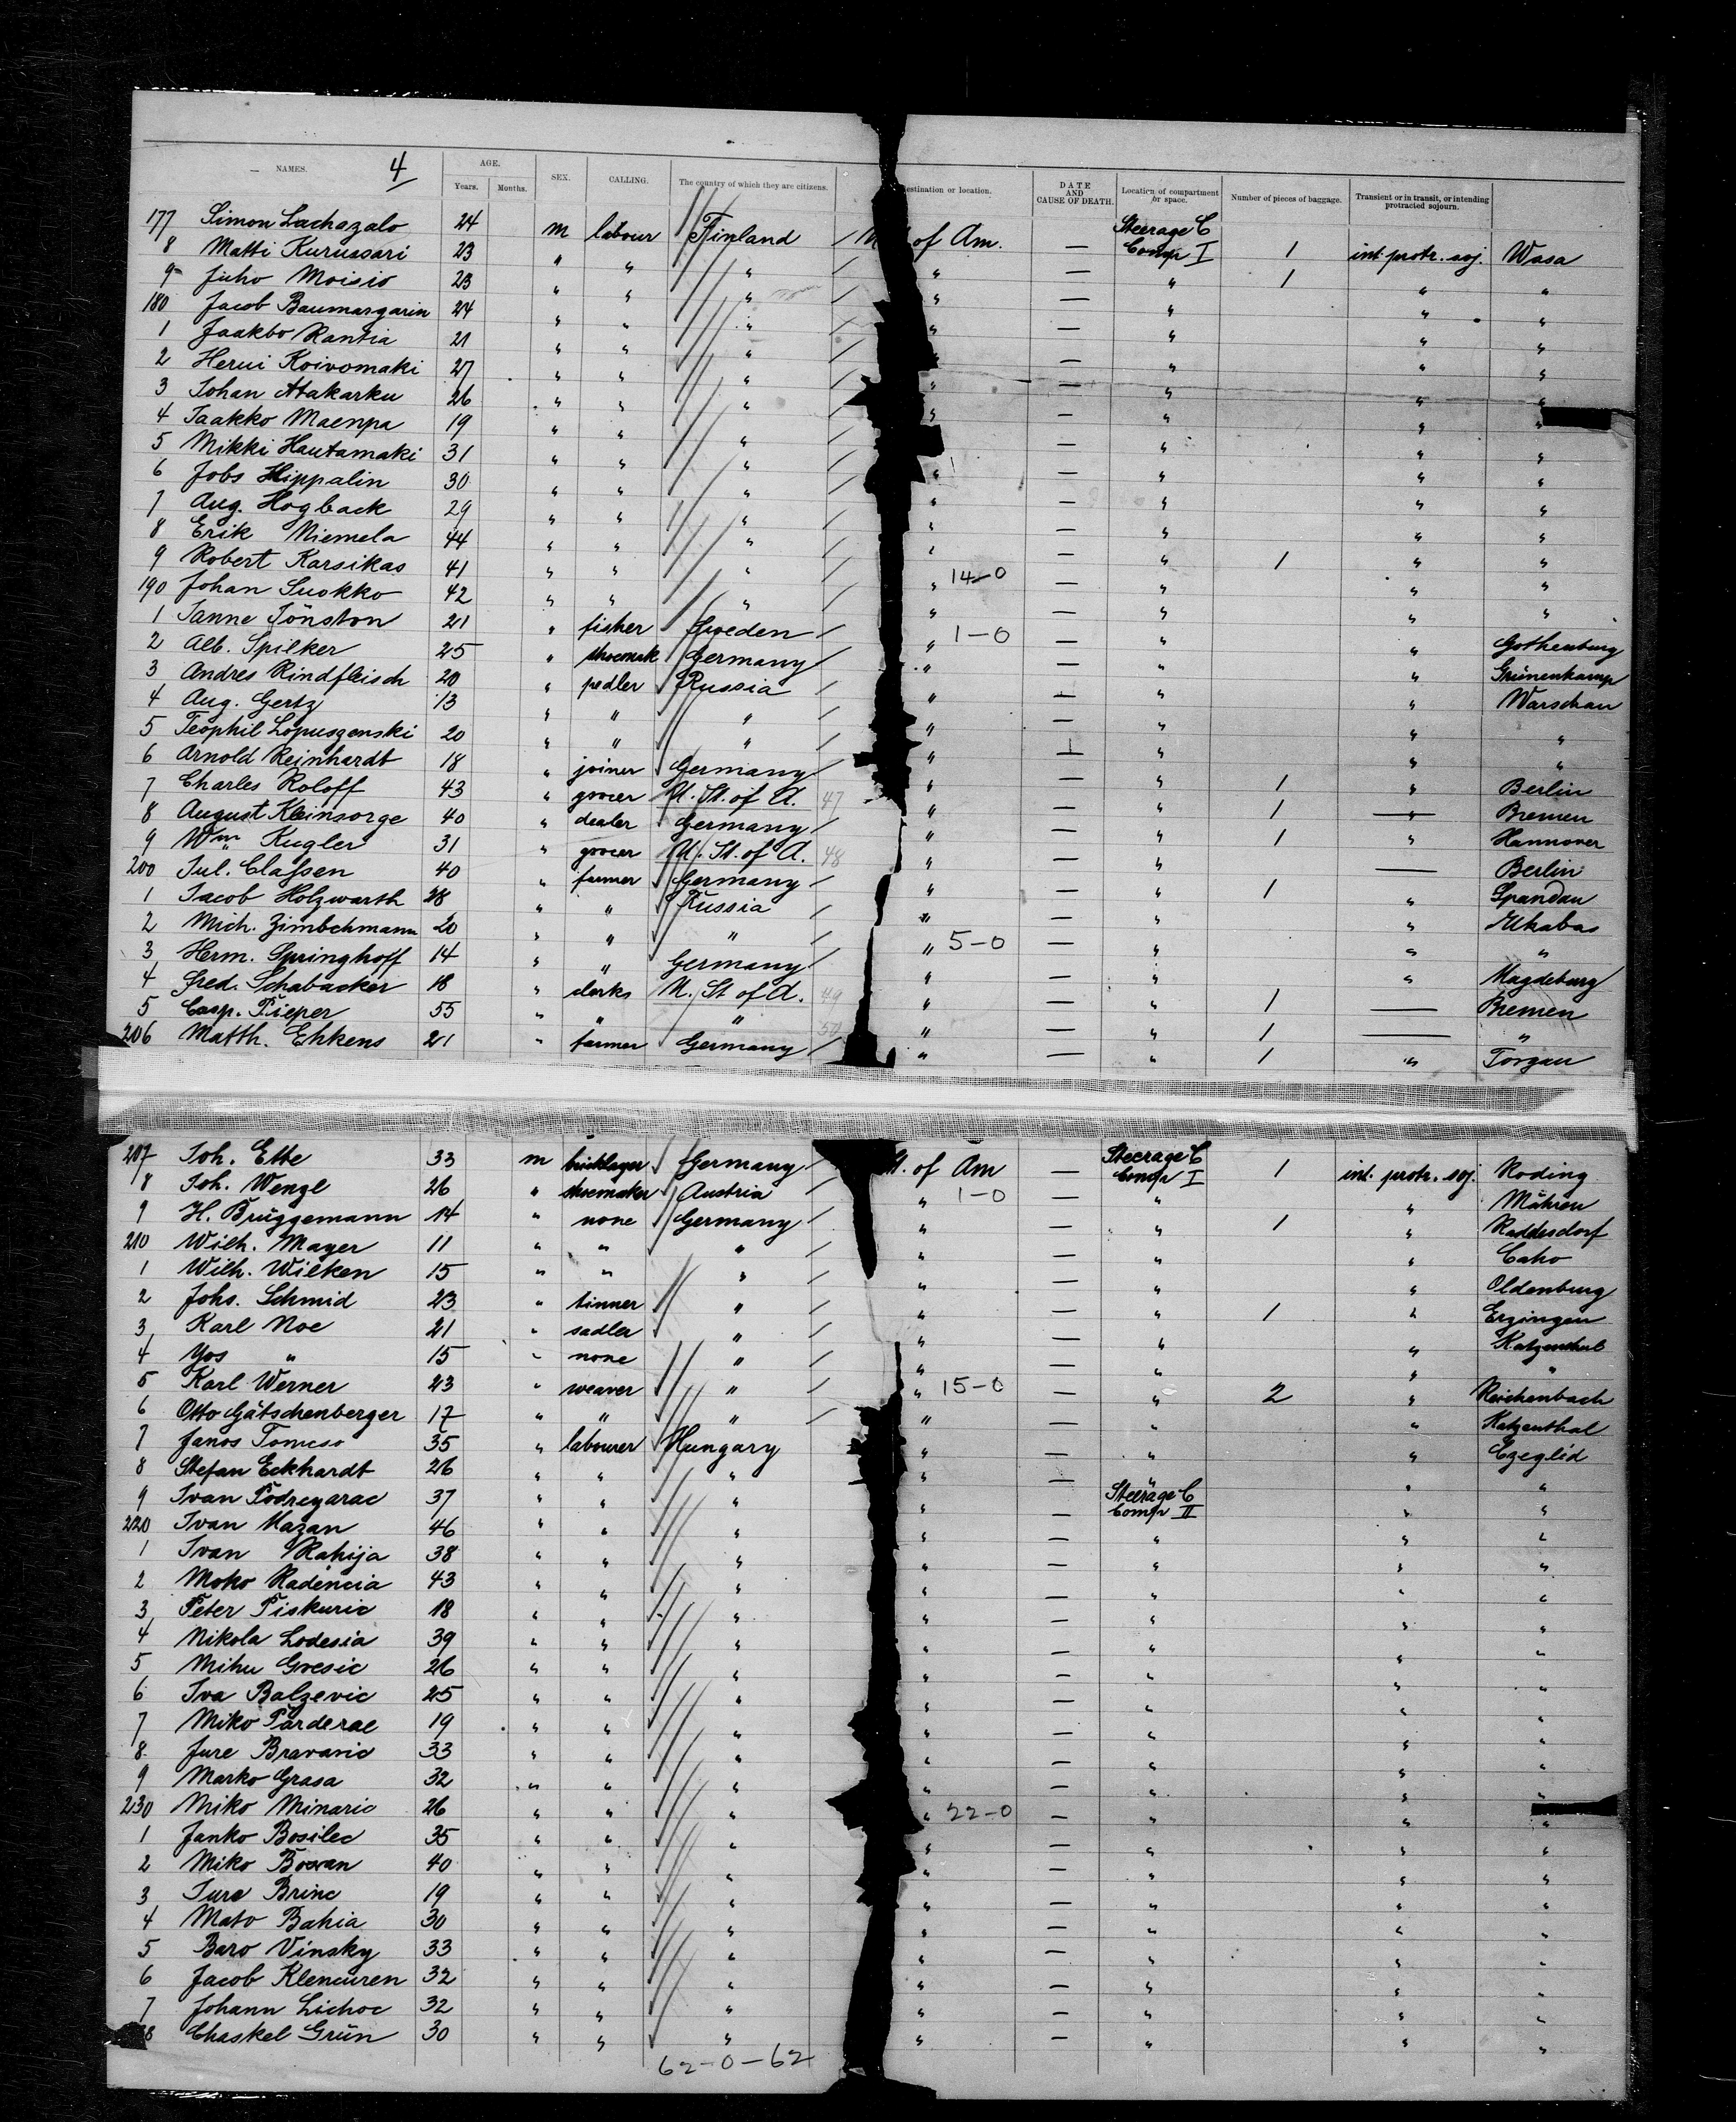 4
NAMES. AGE. Years. Months. SEX. CALLING. The country of which they are citizens. destination or location. DATE AND CAUSE OF DEATH. Location of compartment or space. Number of pieces of baggage. Transient or in transit, or intending protracted sojourn.
177 Simon Lachazalo 24 m labour Finland of Am. — Steerage C Comp I 1 int. protr. soj. Wasa
8 Matti Kurussari 23 " " " " — " 1 " "
9 Juho Moisio 23 " " " " — " " "
180 Jacob Baumargarin 24 " " " " — " " "
1 Jaakbo Rantia 21 " " " " — " " "
2 Herui Koivomaki 27 " " " " — " " "
3 Johan Atakarku 26 " " " " — " " "
4 Jaakko Maenpa 19 " " " " — " " "
5 Mikki Hautamaki 31 " " " " — " " "
6 Jobs Hippalin 30 " " " " — " " "
7 Aug. Hogback 29 " " " " — " " "
8 Erik Niemela 44 " " " " — " " "
9 Robert Karsikas 41 " " " " — " 1 " "
190 Johan Suokko 42 " " " " 14-0 — " " "
1 Janne Jönston 21 " fisher Sweden " 1-0 — " " Gothenburg
2 Alb. Spilker 25 " shoemak Germany " — " " Grünenkamp
3 Andres Rindfleisch 20 " pedler Russia " — " " Warschau
4 Aug. Gertz 13 " " " " — " " "
5 Teophil Lopuszenski 20 " " " " — " " "
6 Arnold Reinhardt 18 " joiner Germany " — " 1 " Berlin
7 Charles Roloff 43 " grocer U. St. of A. 47 " — " 1 — Bremen
8 August Kleinsorge 40 " dealer Germany " — " 1 " Hannover
9 Wm Kugler 31 " grocer U. St. of A. 48 " — " — Berlin
200 Jul. Claſsen 40 " farmer Germany " — " 1 " Spandau
1 Jacob Holzwarth 28 " " Russia " — " "
2 Mich. Zimbehmann 20 " " " " 5-0 — " " "
3 Herm. Springhoff 14 " " Germany " — " " Magdeburg
4 Fred. Schabacker 18 " clerks U. St of A. 49 " — " 1 — Bremen
5 Casp. Pieper 55 " " " 50 " — " 1 — "
206 Matth. Ehkens 21 " farmer Germany " — " 1 " Torgau
207 Joh. Ette 33 m bricklayer Germany St. of Am — Steerage C Comp I 1 int. protr. soj. Roding
8 Joh. Wengl 26 " shoemaker Austria " 1-0 — " " Mähren
9 H. Brüggemann 14 " none Germany " — " 1 " Raddesdorf
210 Wilh. Mayer 11 " " " " — " " Caho
1 Wilh. Wilken 15 " " " " — " " Oldenburg
2 Johs. Schmid 23 " tinner " " — " 1 " Erzingen
3 Karl Noe 21 " sadler " " — " " Katzenthal
4 Yos " 15 " none " " — " " "
5 Karl Werner 23 " weaver " " 15-0 — " 2 " Reichenbach
6 Otto Götschenberger 17 " " " " — " " Katzenthal
7 Janos Tomcso 35 " labourer Hungary " — " " Czeglid
8 Stefan Eckhardt 26 " " " " — " " "
9 Ivan Podregarac 37 " " " " — Steerage C Comp II " "
220 Ivan Mazan 46 " " " " — " " "
1 Ivan Rahija 38 " " " " — " " "
2 Moko Radencia 43 " " " " — " " "
3 Peter Piskuric 18 " " " " — " " "
4 Nikola Lodesia 39 " " " " — " " "
5 Mihu Gresic 26 " " " " — " " "
6 Iva Balzevic 25 " " " " — " " "
7 Miko Parderal 19 " " " " — " " "
8 Jure Bravaric 33 " " " " — " " "
9 Marko Grasa 32 " " " " — " " "
230 Miko Minaric 26 " " " " 22-0 — " " "
1 Janko Bosilec 35 " " " " — " " "
2 Miko 40 " " " " — " " "
3 Jure Brinc 19 " " " " — " " "
4 Mato Bahia 30 " " " " — " " "
5 Baro Vinsky 33 " " " " — " " "
6 Jacob Klencuren 32 " " " " — " " "
7 Johann Lichoc 32 " " " " — " " "
8 Chaskel Grün 30 " " " " — " " "
62-0-62